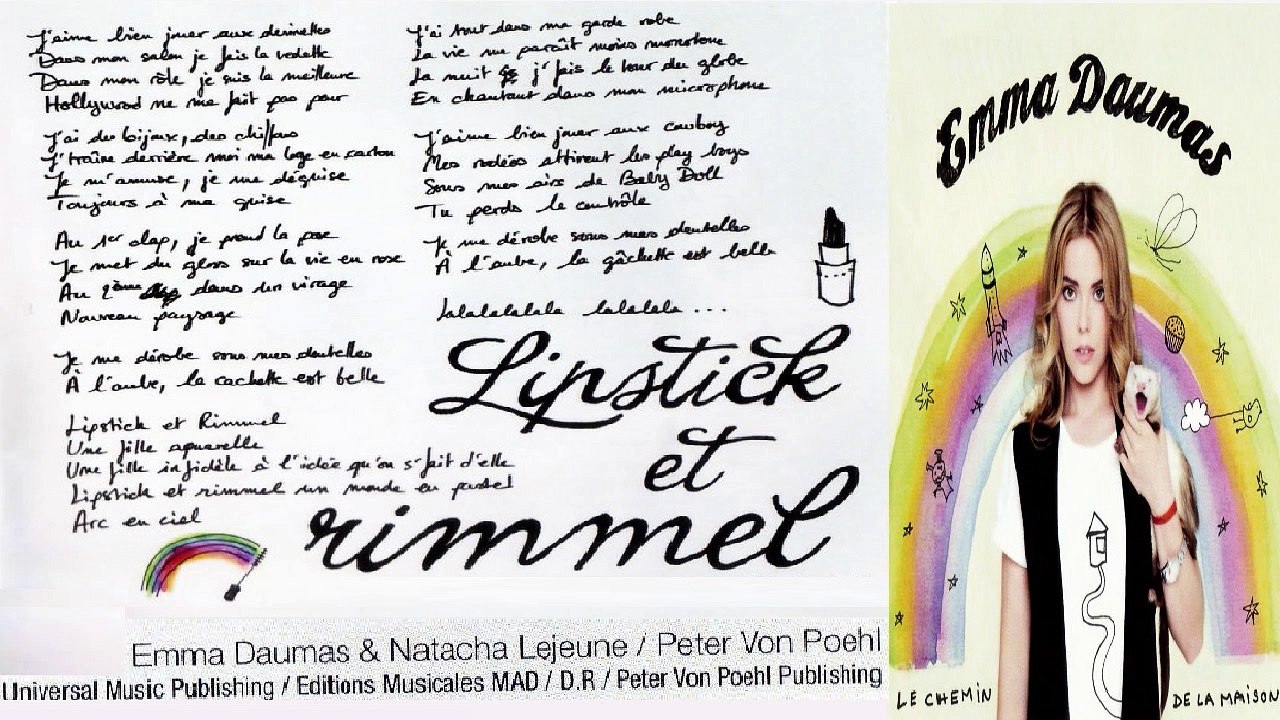 J'aime bien jouer aux devinettes
Dans mon salon je fais la vedette
Dans mon rôle je suis la meilleure
Hollywood ne me fait pas peur
J'ai des bijoux, des chiffons
J'traîne derrière moi ma loge en carton
Je m'amuse, je me déguise
Toujours à ma guise
Au 1er clap, je prend la pose
Je met du gloss sur la vie en rose
Au 2ème dans un virage
Nouveau paysage
Je me dérobe sous mes dentelles
À l'aube, la cachette est belle
Lipstick et Rimmel
Une fille aquarelle
Une fille infidèle à l'idée qu'on s'fait d'elle
Lipstick et rimmel un monde en pastel
Arc en ciel
J'ai tout dans ma garde robe
La vie me paraît moins monotone
La nuit j'fais le tour du globe
En chantant dans mon microphone
J'aime bien jouer aux cowboys
Mes rodéos attirent les play boys
Sous mes airs de Baby Doll
Tu perds le contrôle
Je me dérobe sous mes dentelles
À l'aube, la gâchette est belle
Lalalalalala lalalala ...
Lipstick
et
rimmel
Emma Daumas & Natacha Lejeune / Peter Von Poehl
Universal Music Publishing / Editions Musicales MAD / D.R / Peter Von Poehl Publishing
Emma Daumas
LE CHEMIN DE LA MAISON